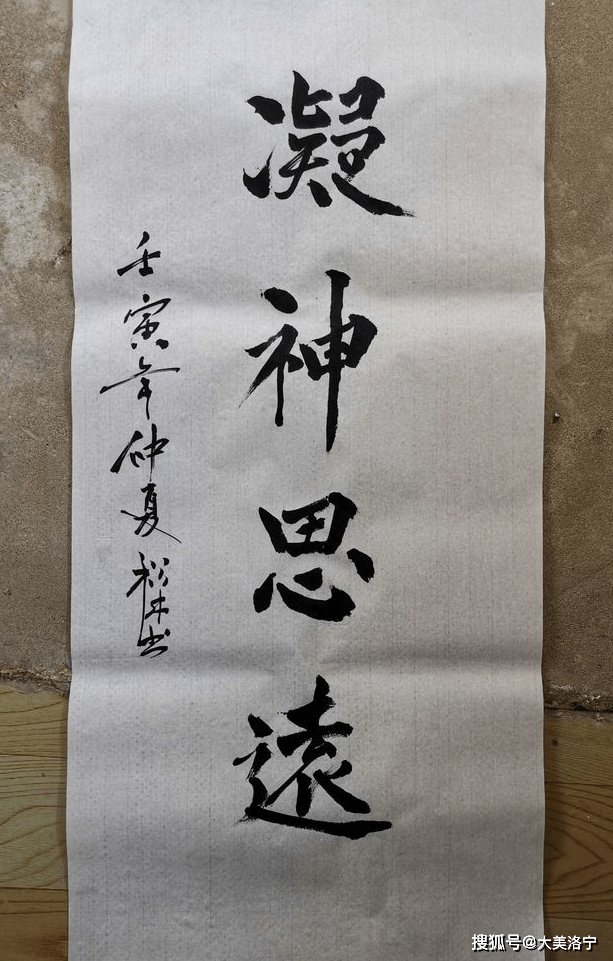 凝神思遠
壬寅年仲夏 松林书
搜狐号@大美洛宁